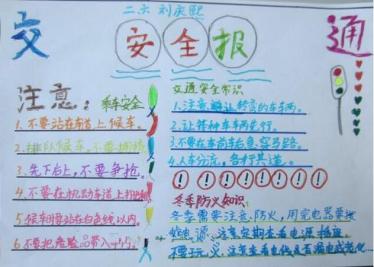 二六 刘庆熙
交
安全报
通
注意：乘车安全
1.不要站在车道上候车。
2.排队候车，不要拥挤。
3.先下后上，不要争抢。
4.不要在机动车道上
5.候车时站在白色线以内。
6.不要把危险品带入
交通安全常识
1.注意避让转弯的车辆。
2.让特种车辆先行。
3.不要在车前车后急穿马路。
4.人车分流，各行其道。
冬季防火知识
冬季需要注意防火，用完电器要
电源，注意定期查看电源插座